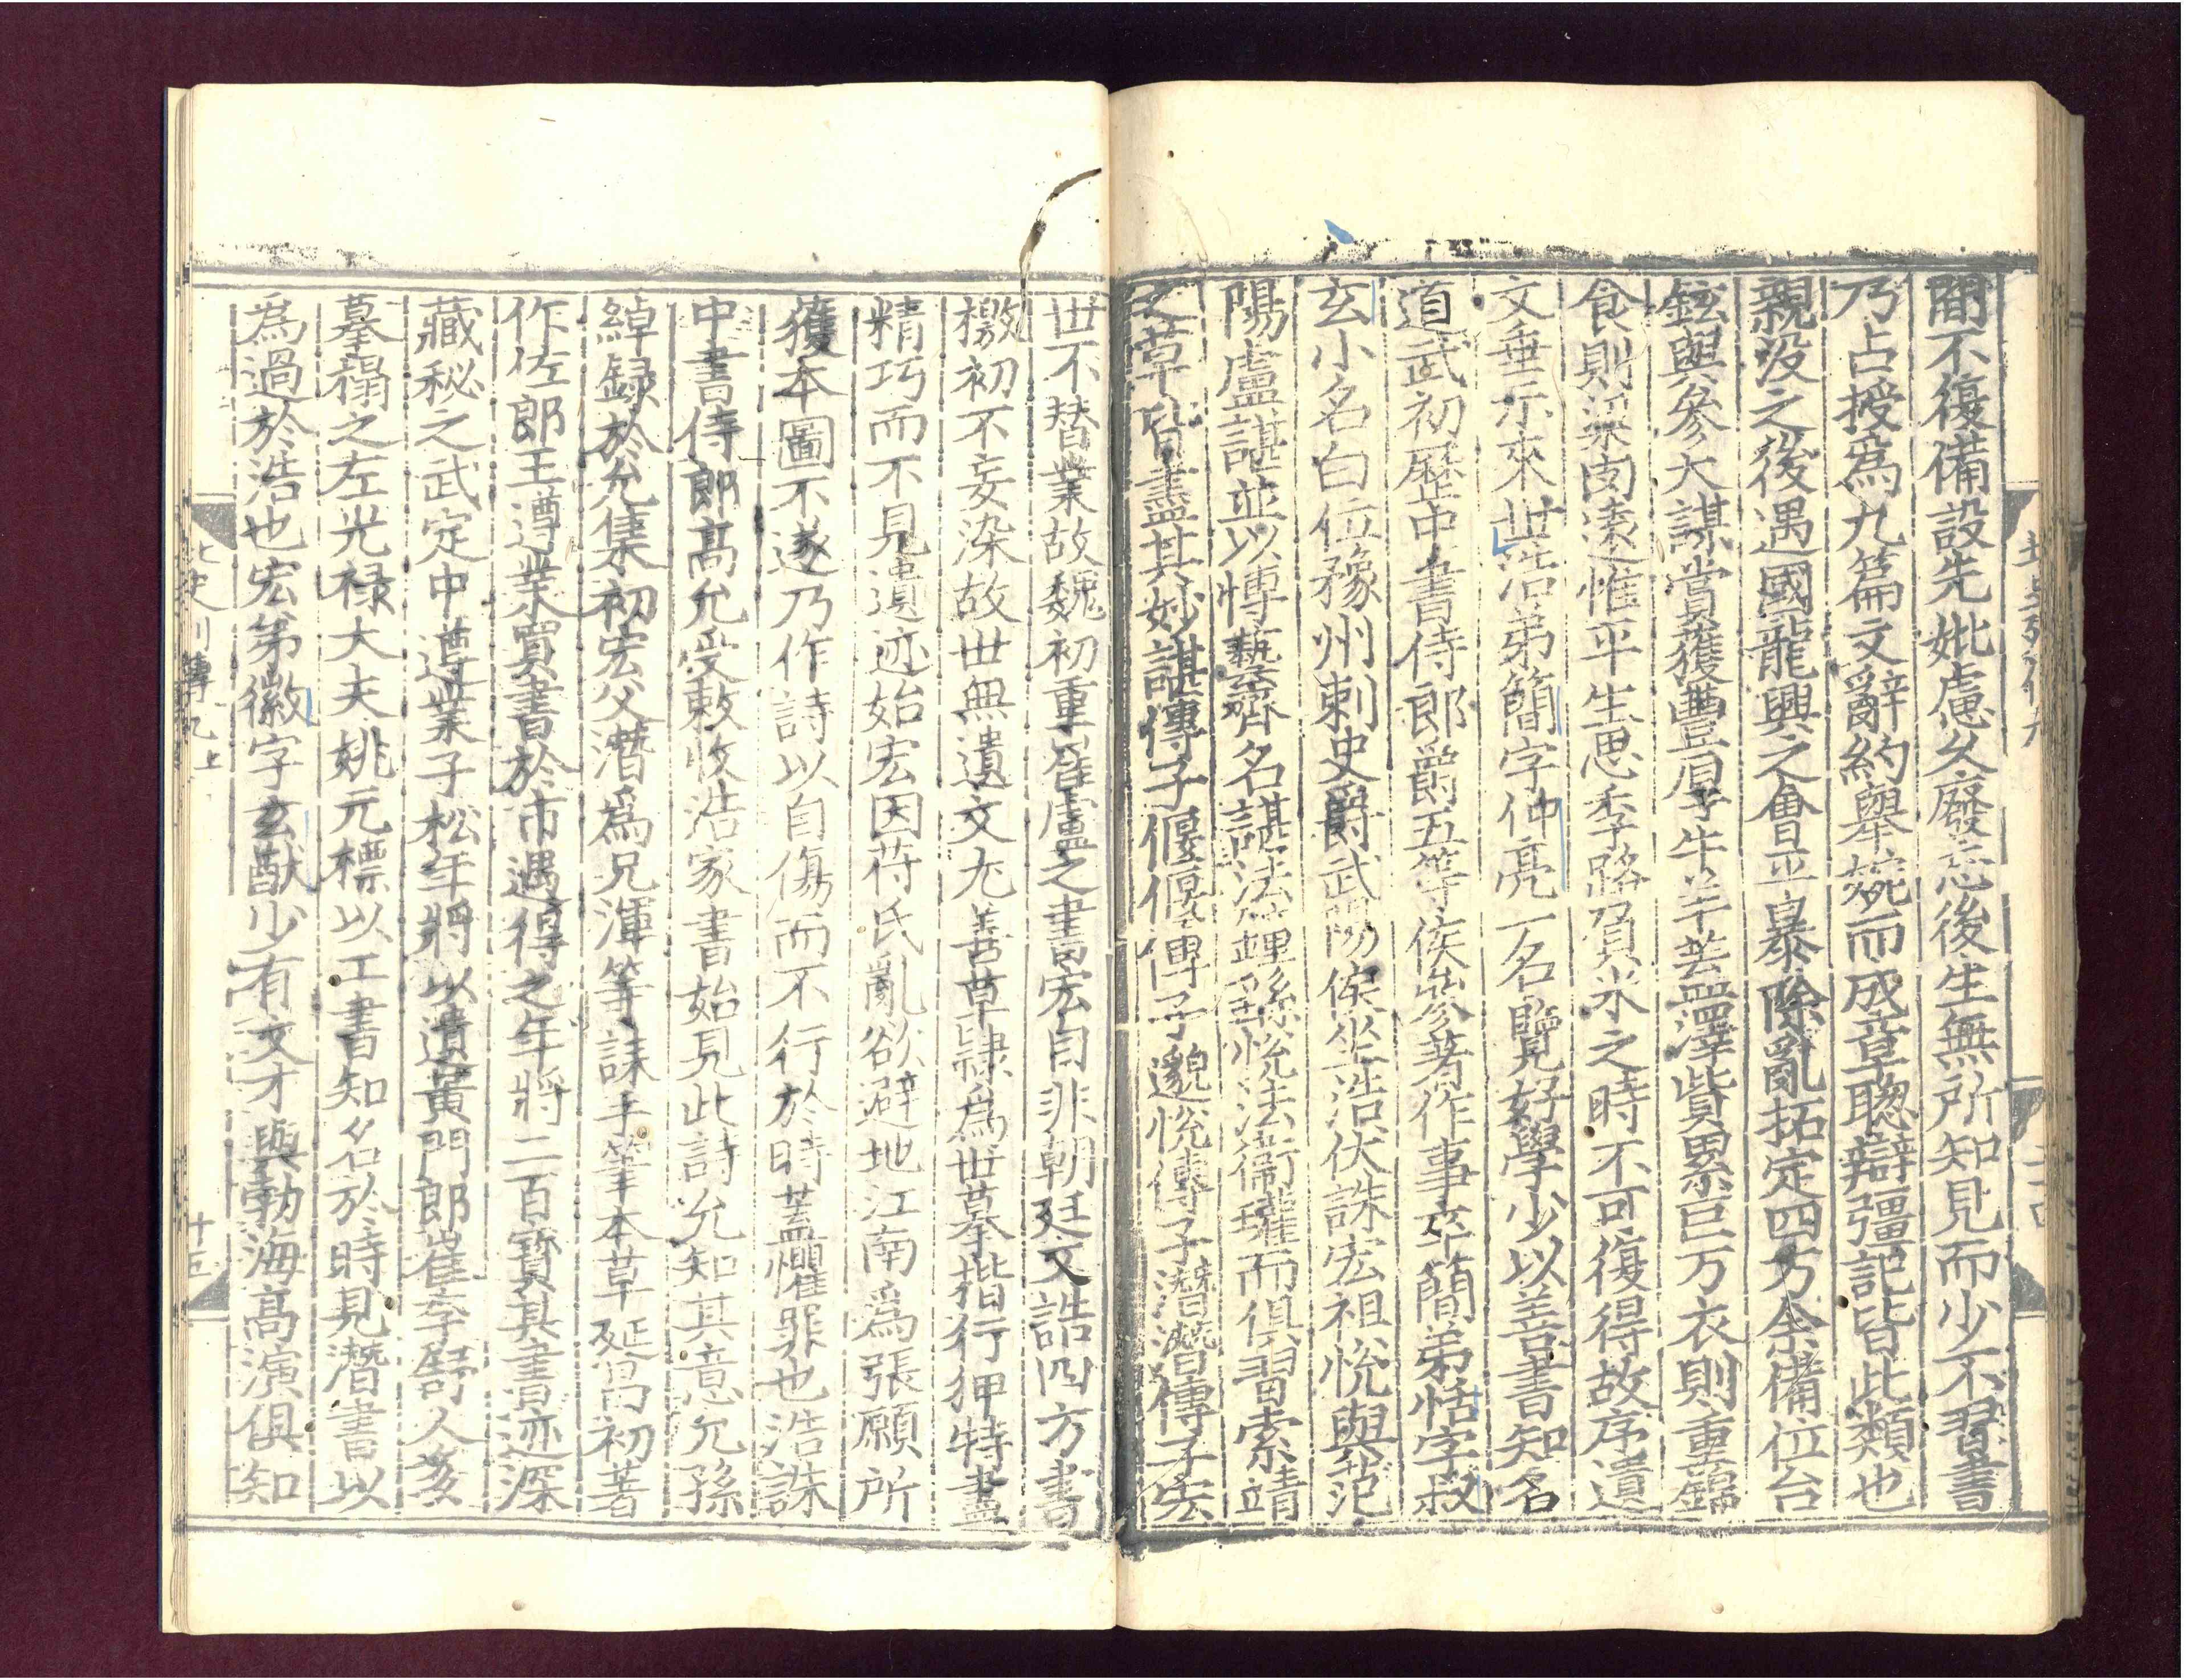 間不復備設先妣慮久廢忘後生無所知見而少不習書
乃占授爲九篇文辭約舉婉而成章聰辯彊記皆此類也
親沒之後遇國龍興之會平暴除亂拓定四方余備位台
鉉與參大謀賞獲豊厚牛羊蓋澤貲累巨万衣則重錦
食則粱肉遠惟平生思季路負米之時不可復得故序遺
文垂示來世浩弟簡字仲亮一名覽好學少以善書知名
道武初歷中書侍郎爵五等侯參著作事卒簡弟恬字叔
玄小名白位豫州刺史爵武陽侯坐浩伏誅宏祖悅與范
陽盧諶並以博藝齊名諶法鍾繇悅法衛瓘而俱習索靖
之草皆盡其妙諶傳子偃偃傳子邈悅傳子潛潛傳子宏
世不替業故魏初重崔盧之書宏自非朝廷文誥四方書
檄初不妄染故世無遺文尤善草隷爲世摹揩行狎特盡
精巧而不見遺迹始宏因苻氏亂欲避地江南爲張願所
獲本圖不遂乃作詩以自傷而不行於時蓋懼罪也浩誅
中書侍郎高允受敕收浩家書始見此詩允知其意允孫
綽録於允集初宏父潛爲兄渾等誄手筆本草延昌初著
作佐郎王遵業買書於市遇得之年將二百寳其書迹深
藏秘之武定中遵業子松年將以遺黃門郎崔季舒人多
摹搨之左光祿大夫姚元標以工書知名於時見潛書以
爲過於浩也宏弟徽字玄猷少有文才與勃海高演俱知
北史列傳九上
十五